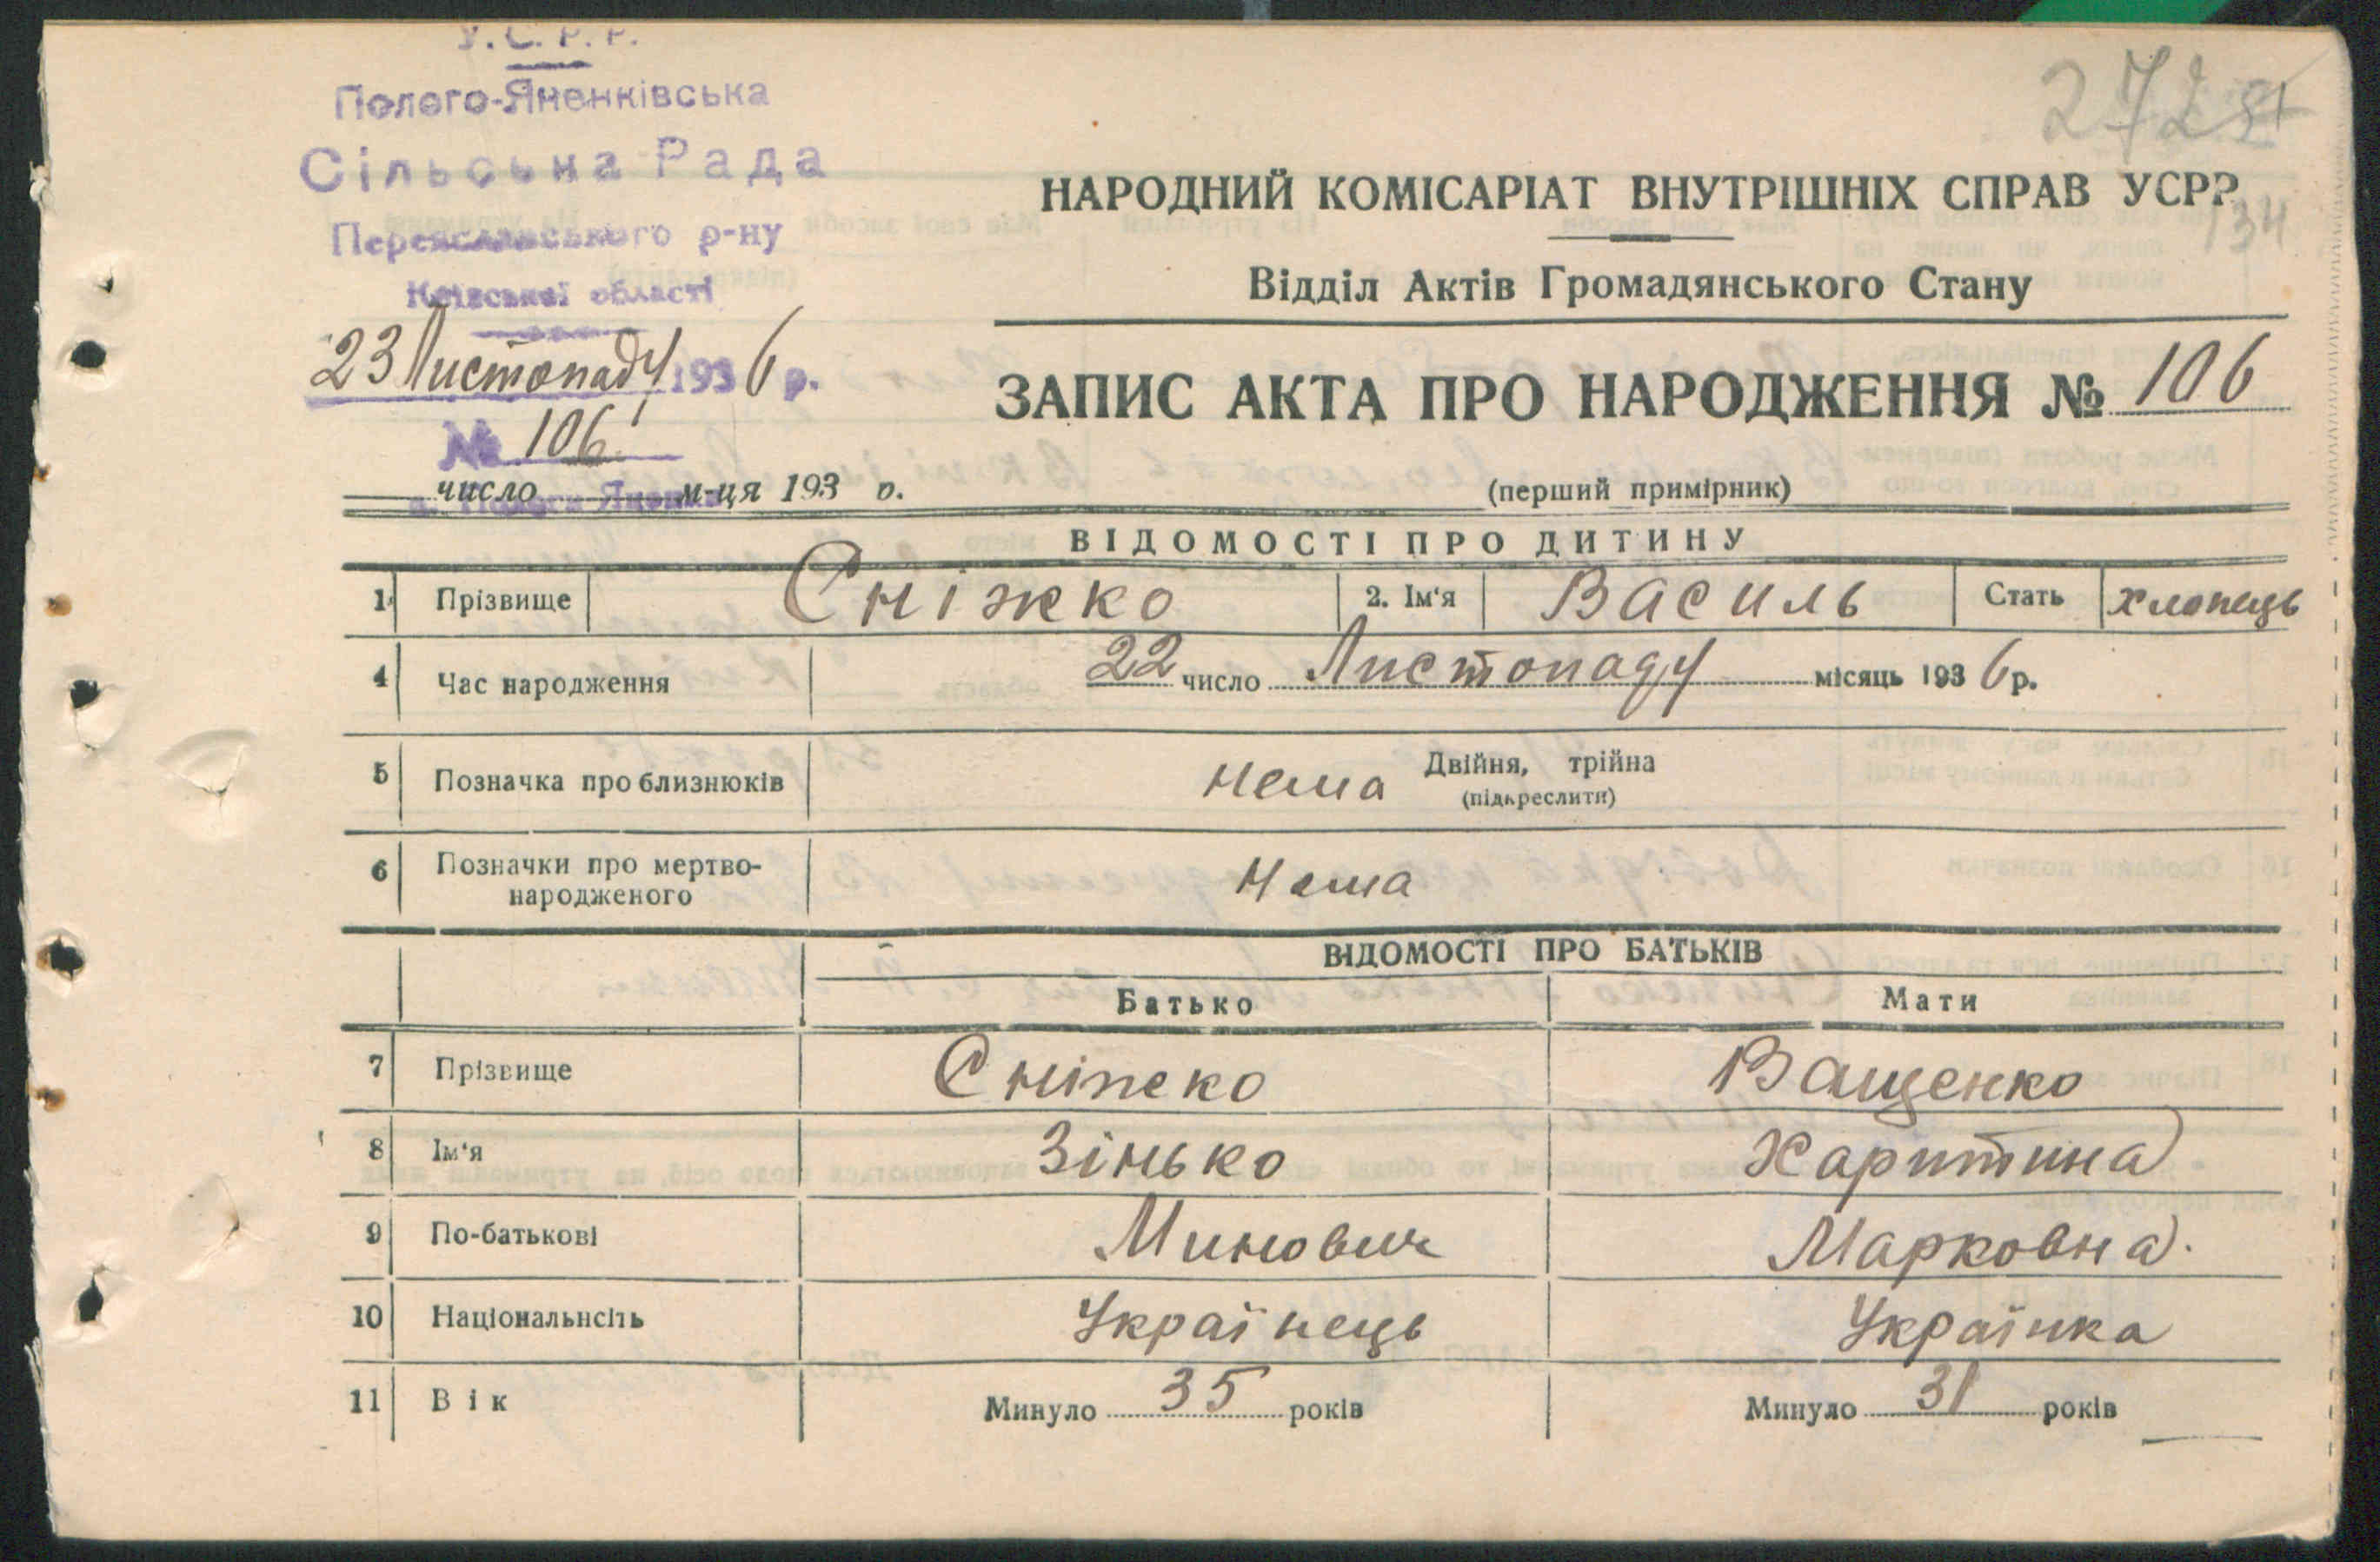 У.С.Р.Р.
Полого-Яненківська
Сільська Рада
Переяславського р-ну
Київської області
23 Листопаду 1936 р.
№ 106
число м-ця 193 р.
с. Пологи Яненки
272
134
НАРОДНИЙ КОМІСАРІАТ ВНУТРІШНІХ СПРАВ УСРР
Відділ Актів Громадянського Стану
ЗАПИС АКТА ПРО НАРОДЖЕННЯ № 106
(перший примірник)
ВІДОМОСТІ ПРО ДИТИНУ
1 Прізвище Сніжко 2. Ім'я Василь Стать хлопець
4 Час народження 22 число Листопаду місяць 1936 р.
5 Позначка про близнюків нема Двійня, трійна
(підкреслити)
6 Позначки про мертво-
народженого Нема
ВІДОМОСТІ ПРО БАТЬКІВ
Батько Мати
7 Прізвище Сніжко Ващенко
8 Ім'я Зінько Харитина
9 По-батькові Минович Марковна.
10 Національнсіть Українець Українка
11 Вік Минуло 35 років Минуло 31 років